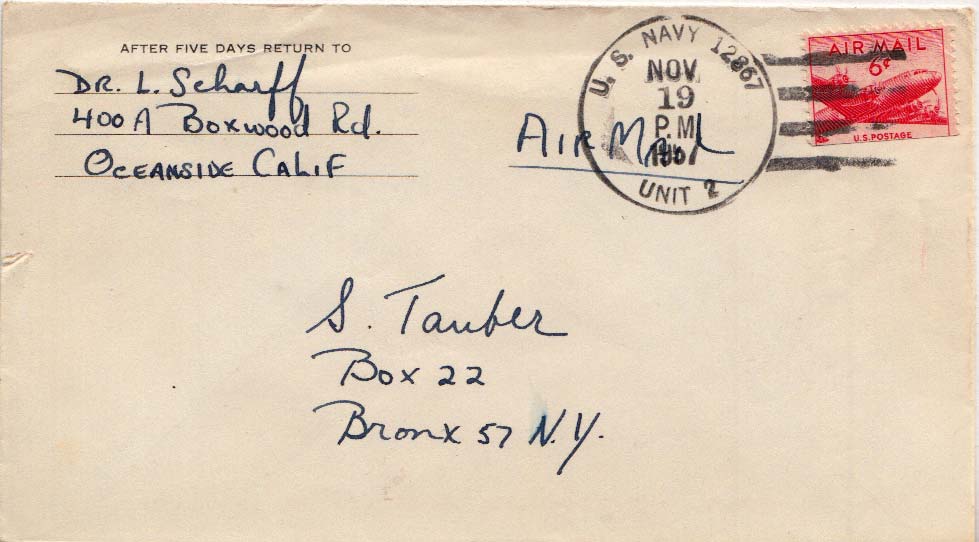 AFTER FIVE DAYS RETURN TO
DR. L. Scharff
400 A Boxwood Rd.
OCEANSIDE CALIF
AIR Mail
U. S. NAVY 12867
NOV
19
P.M.
UNIT 2
AIR MAIL
6¢
U.S. POSTAGE
S. Tauber
Box 22
Bronx 57 N.Y.